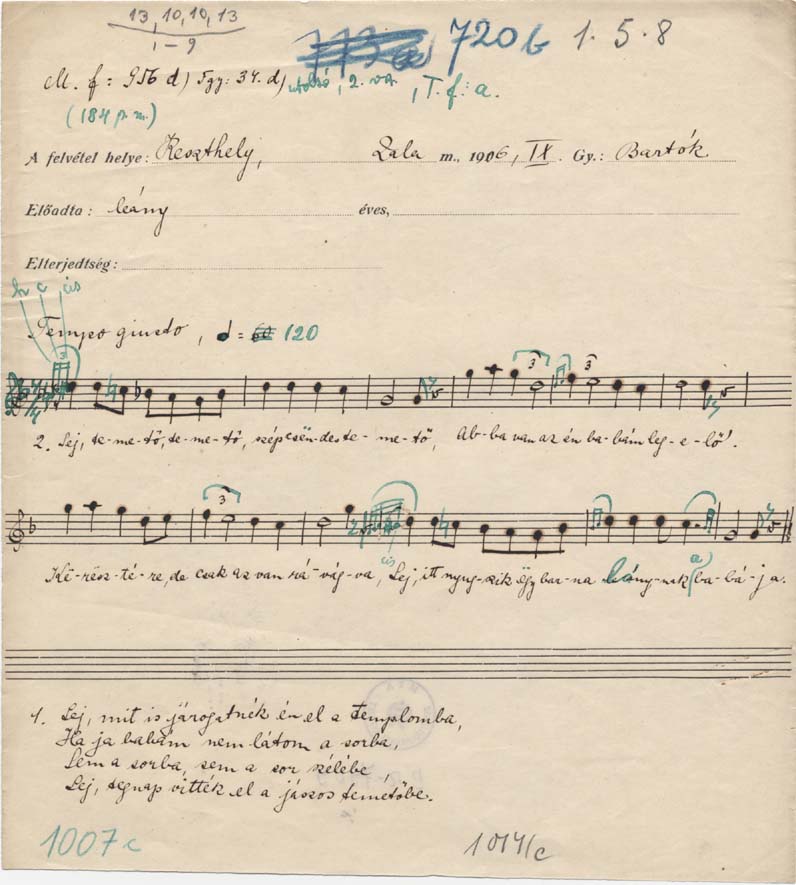 13, 10, 10, 13
1-9
720b 1.5.8
M. f: 956 d) Fgy: 34. d) utolsó, 2. va. , T. f: a.
(184 p. m.)
A felvétel helye: Keszthely, Zala m., 1906, IX. Gy.: Bartók
Előadta: leány éves,
Elterjedtség:
h c cis
Tempo giusto, = 120
3 3 3
2. Sej, te-me-tő, te-me-tő, szép csën-des te-me-tő, Ab-ba van az én ba-bám leg-e-lő!
3
cis a)
Kë-rësz-té-re, de csak az van rá-vág-va, Sej, itt nyug-szik ëgy bar-na leány-nak ba-bá-ja.
1. Sej, mit is járogatnék én el a templomba,
Ha ja babám nem látom a sorba,
Sem a sorba, sem a sor szélébe,
Sej, tegnap vitték el a jászos temetőbe.
1007c 1014/c